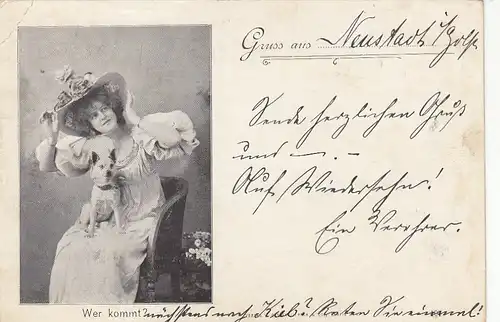 Gruss aus Neustadt i/Holst
Sende herzlichen Gruß
und — . –
Auf Wiedersehn!
Ein Verehrer.
Wer kommt? nächstens nach Kiel? Raten Sie einmal!